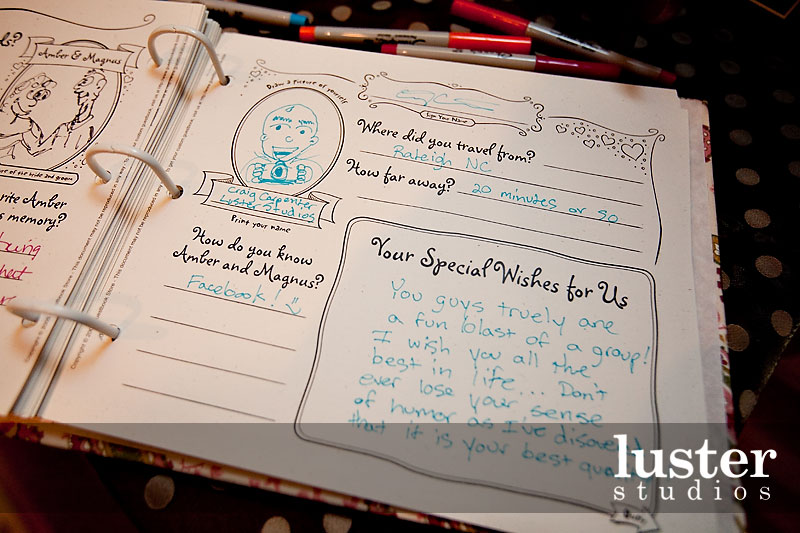 ds?
Amber & Magnus
re of the bride and groom
rite Amber
s memory?
Draw a picture of yourself
Craig Carpenter
Luster Studios
Print your name
Sign Your Name
Where did you travel from?
Raleigh NC
How far away? 20 minutes or so
How do you know
Amber and Magnus?
Facebook!
Your Special Wishes for Us
You guys truely are
a fun blast of a group!
I wish you all the
best in life... Don't
ever lose your sense
of humor as I've disovered
that it is your best quality
luster
studios